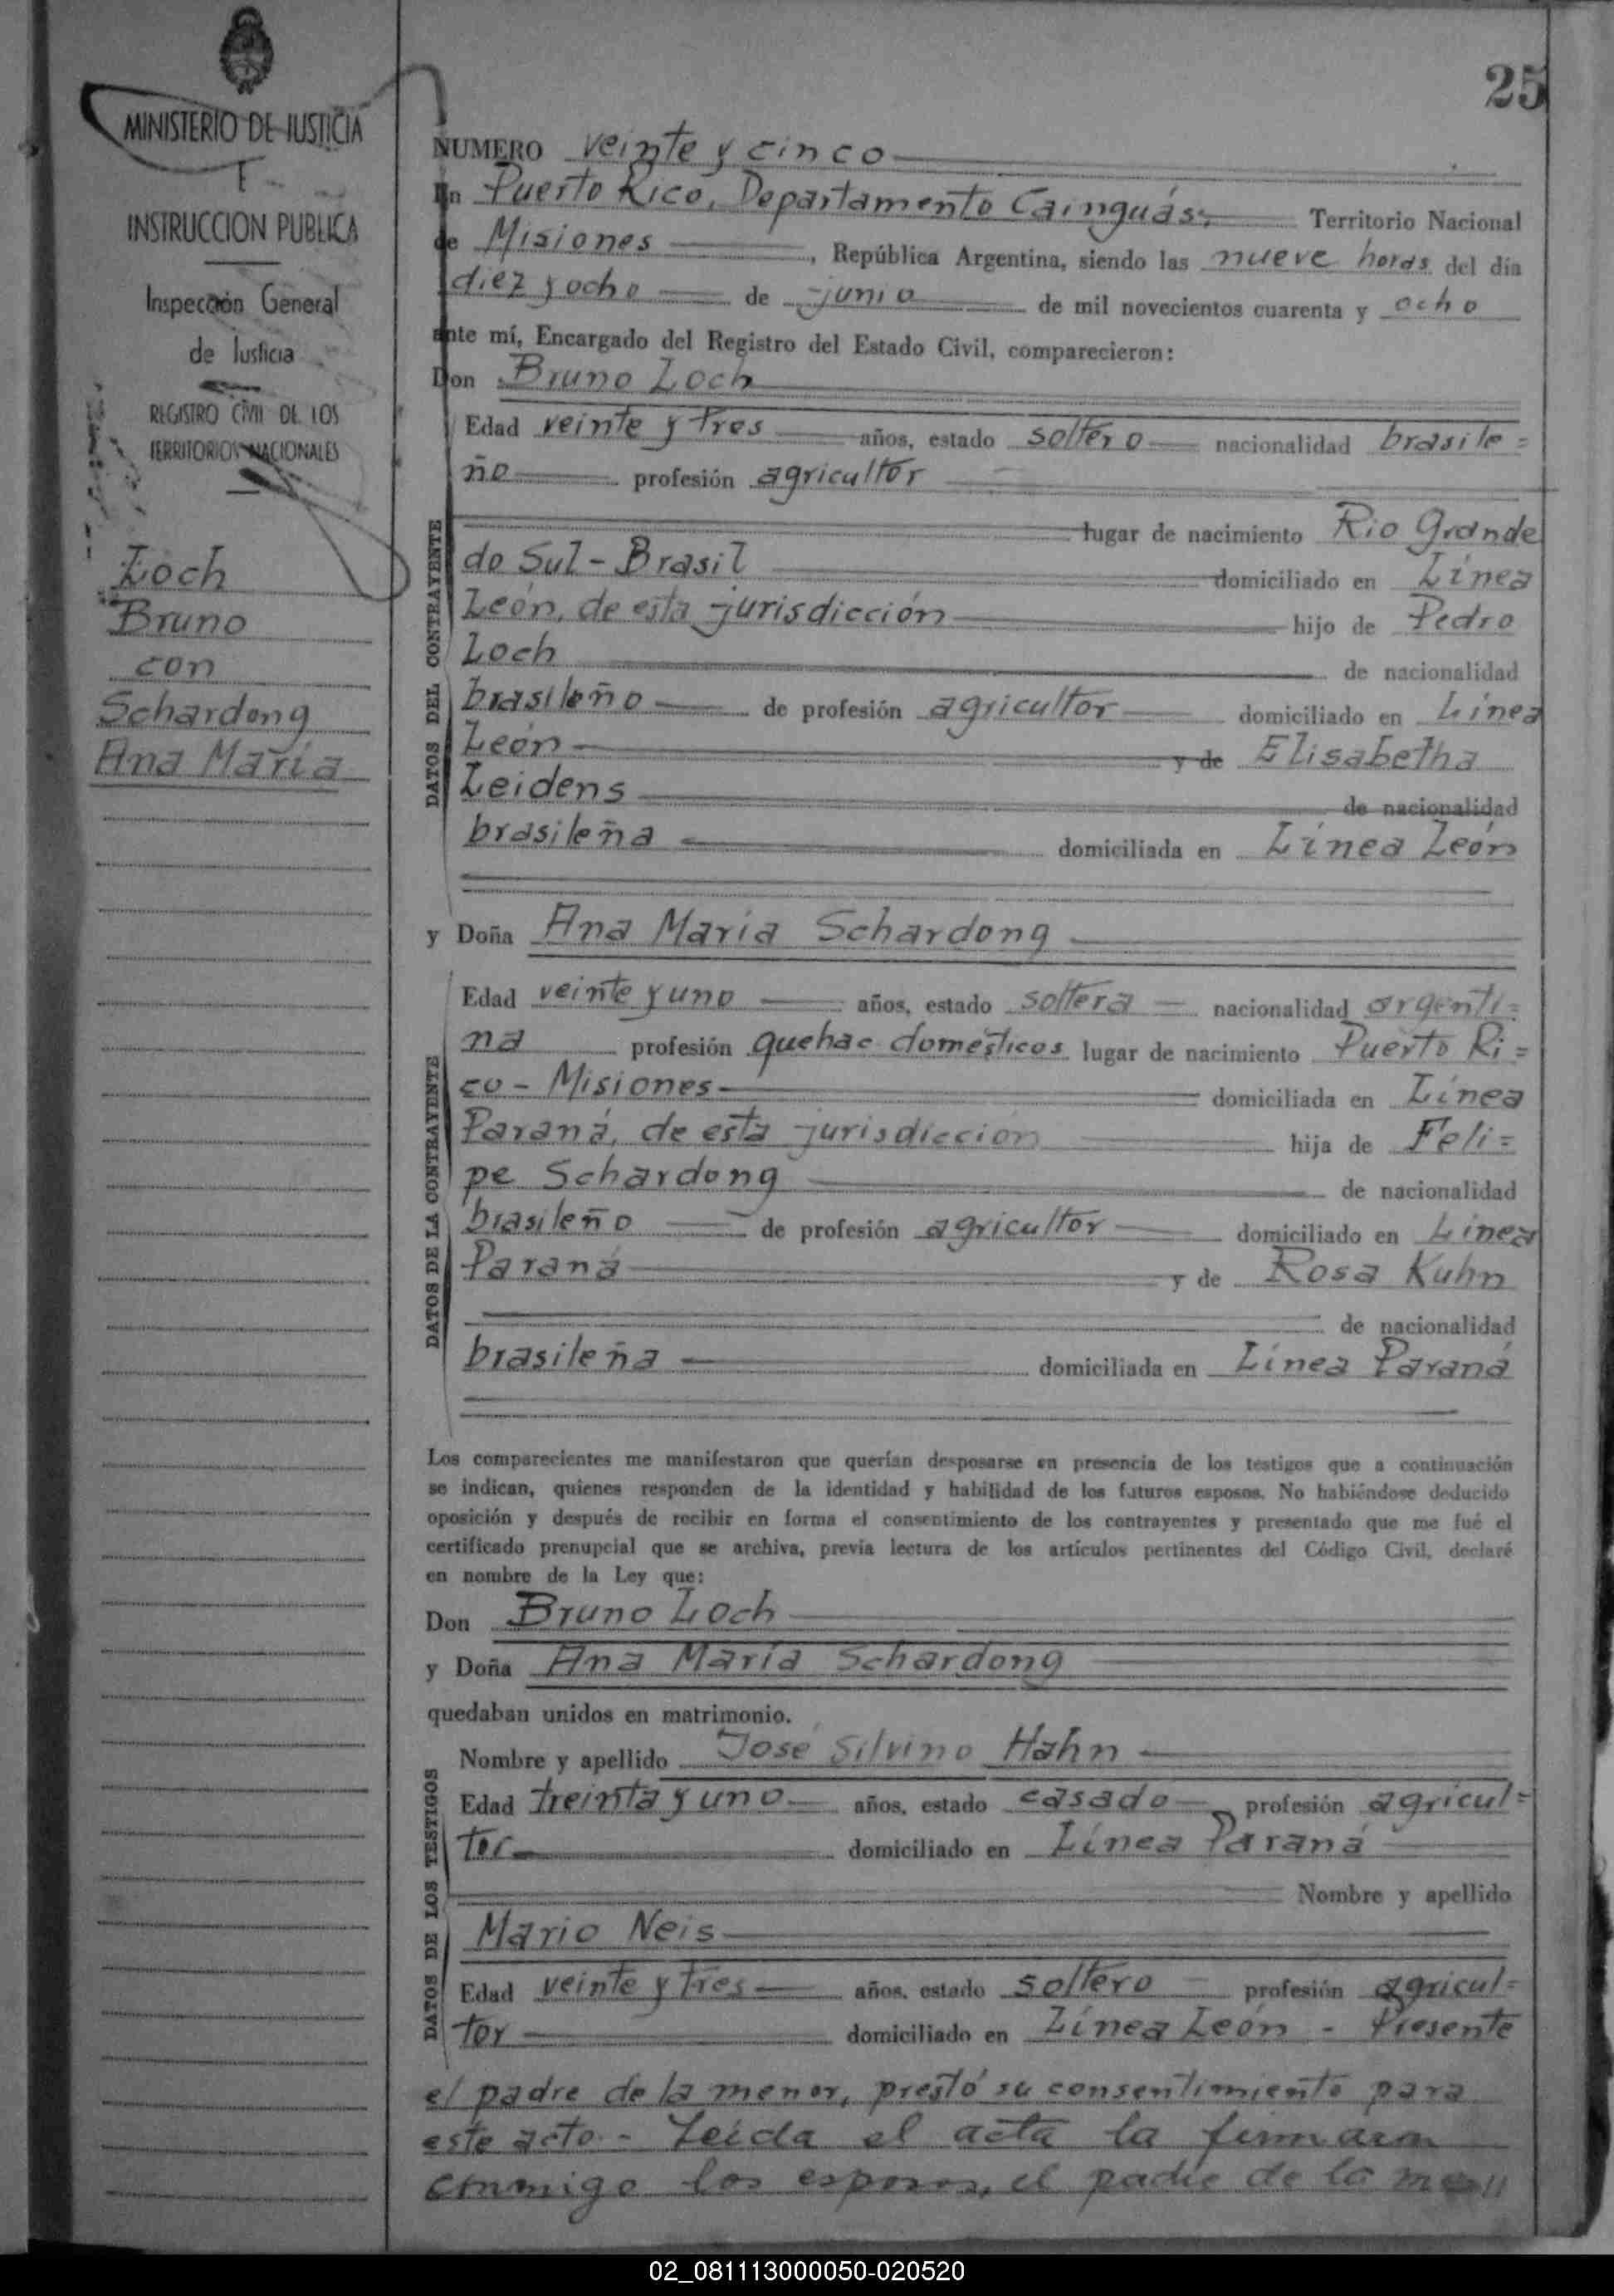 25
MINISTERIO DE JUSTICIA
E
INSTRUCCION PUBLICA
Inspección General
de Justicia
REGISTRO CIVIL DE LOS
TERRITORIOS NACIONALES
Loch
Bruno
con
Schardong
Ana María
NUMERO veinte y cinco
En Puerto Rico, Departamento Cainguás, Territorio Nacional
de Misiones, República Argentina, siendo las nueve horas del día
diez y ocho de junio de mil novecientos cuarenta y ocho
ante mí, Encargado del Registro del Estado Civil, comparecieron:
Don Bruno Loch
DATOS DEL CONTRAYENTE
Edad veinte y tres años, estado soltero nacionalidad brasile=
ño profesión agricultor
lugar de nacimiento Rio Grande
do Sul - Brasil domiciliado en Línea
León, de esta jurisdicción hijo de Pedro
Loch de nacionalidad
brasileño de profesión agricultor domiciliado en Línea
León y de Elisabetha
Leidens de nacionalidad
brasileña domiciliada en Línea León
y Doña Ana María Schardong
DATOS DE LA CONTRAYENTE
Edad veinte y uno años, estado soltera nacionalidad argenti=
na profesión quehac domésticos lugar de nacimiento Puerto Ri=
co - Misiones domiciliada en Línea
Paraná, de esta jurisdiccion hija de Feli=
pe Schardong de nacionalidad
brasileño de profesión agricultor domiciliado en Línea
Paraná y de Rosa Kuhn
de nacionalidad
brasileña domiciliada en Línea Paraná
Los comparecientes me manifestaron que querían desposarse en presencia de los testigos que a continuación
se indican, quienes responden de la identidad y habilidad de los futuros esposos. No habiéndose deducido
oposición y después de recibir en forma el consentimiento de los contrayentes y presentado que me fué el
certificado prenupcial que se archiva, previa lectura de los artículos pertinentes del Código Civil, declaré
en nombre de la Ley que:
Don Bruno Loch
y Doña Ana María Schardong
quedaban unidos en matrimonio.
DATOS DE LOS TESTIGOS
Nombre y apellido José Silvino Hahn
Edad treinta y uno años, estado casado profesión agricul=
tor domiciliado en Línea Paraná
Nombre y apellido
Mario Neis
Edad veinte y tres años, estado soltero profesión agricul=
tor domiciliado en Línea León - Presente
el padre de la menor, prestó su consentimiento para
este acto.- Leída el acta la firmaron
conmigo los esposos, el padre de la me//
02_081113000050-020520